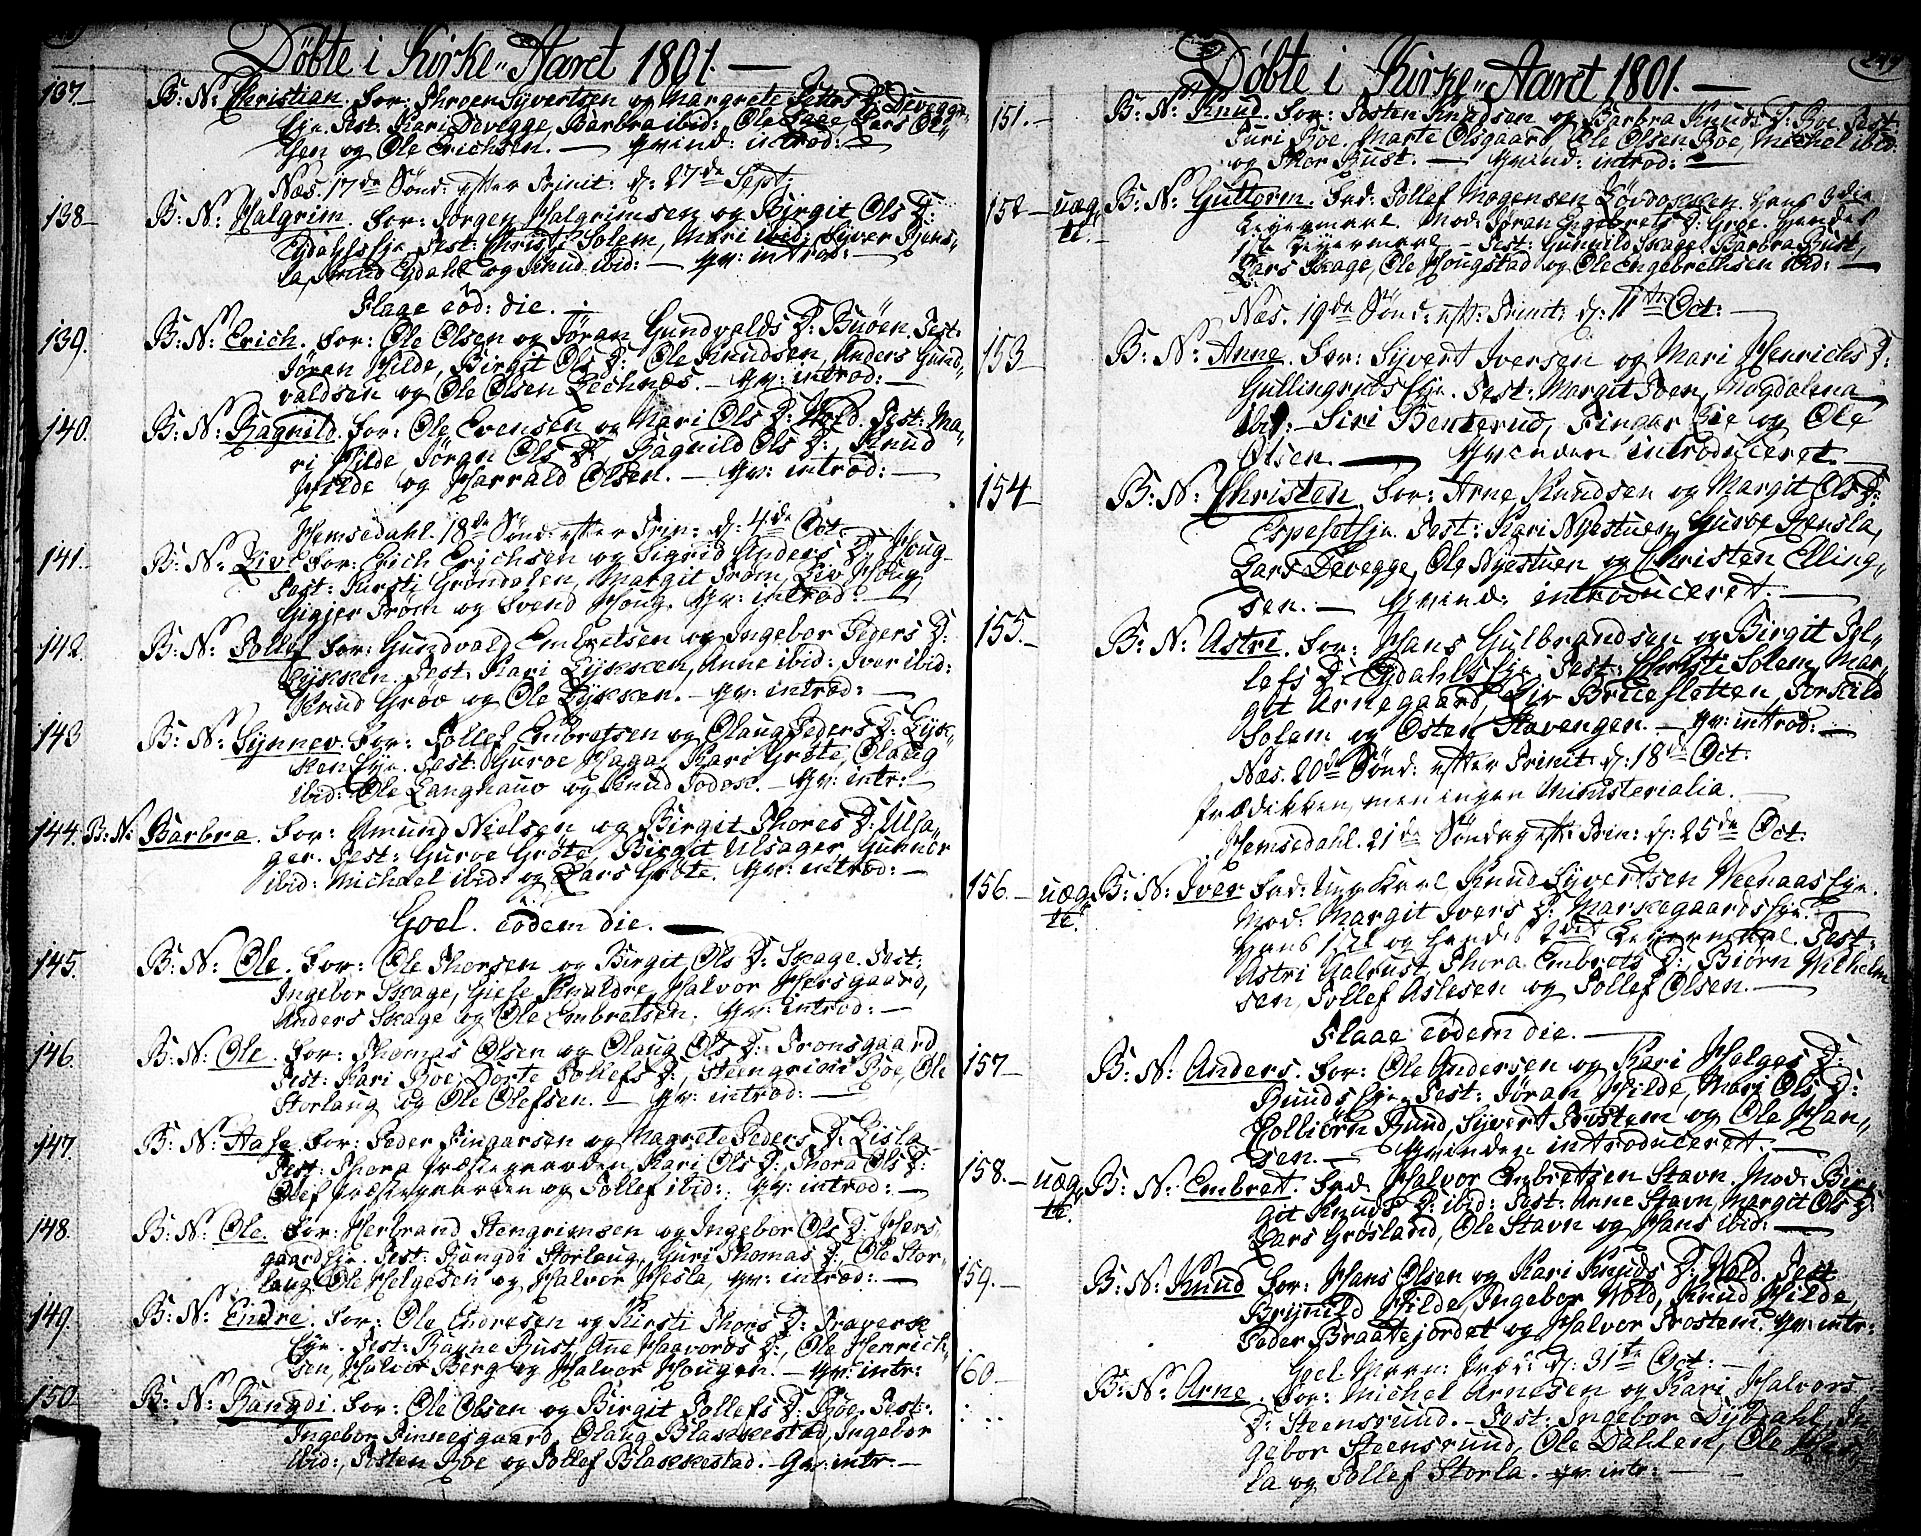 Döbte i Kirke-Aaret 1801. —
137. B: N: Christian. For: Throen Syvertsen og Margrete Petters D: Devegge
Eje. Test: Kari Devegge, Barbra ibid: Ole Lage, Lars Ol-
sen og Ole Erichsen. — Qvind: introd: —
Næs. 17de Sönd: efter Trinit: d: 27de Sept:
138 B: N: Halgrim. For: Jörgen Halgrimsen og Birgit Ols D:
Eydahls Eje. Test: Christi Solem, Mari ibid: Syver Rens-
la, Knud Eydahl og Knud ibid: — Qv: introd: —
Flaae eod: die. —
139. B: N: Erich. For: Ole Olsen og Jöran Gundvalds D: Buöen. Test:
Jöran Hilde, Birgit Ols D: Ole Knudsen, Anders Gund-
valdsen og Ole Olsen Leknæs. — Qv: introd: —
140. B: N: Ragnild. For: Ole Evensen og Mari Ols D: Wold. Test: Ma-
ri Hilde, Jöran Ols D:, Ragnild Ols D:, Knud
Hilde og Harrald Olsen. — Qv: introd: —
Hemsedahl. 18de Sönd: efter Trin: d: 4de Oct:
141. B: N: Liv. For: Erich Erichsen og Sigrid Anders D: Houg
Test: Kirsti Gröndalen, Margit Tröm, Liv Houg,
Gigjer Tröm og Svend Houg. Qv: introd: —
142. B: N: Tollef. For: Gundvald Embretsen og Ingebor Peders D:
Lykken. Test: Kari Lykken, Anne ibid: Iver ibid:
Knud Gröo og Ole Lykken. — Qv: introd: —
143 B: N: Synnev. For: Tollef Embretsen og Olaug Peders D: Lyk-
ken Eje. Test: Guroe Haga, Kari Gröte, Olaug
ibid: Ole Langhaug og Knud Todok. — Qv: intr: —
144. B: N: Barbra. For: Amund Nielsen og Birgit Thores D: Ulsa-
ger. Test: Guroe Gröte, Birgit Ulsager, Gunner
ibid: Michael ibid: og Lars Gröte. Qv: introd: —
Goel. eodem die. —
145. B: N: Ole. For: Ole Thorsen og Birgit Ols D: Skage. Test:
Ingebor Skage, Giese Knaldre, Halvor Hersgaard,
Anders Skage og Ole Embretsen. Qv: introd: —
146. B: N: Ole. For: Thomas Olsen og Olaug Ols D: Tronsgaard
Test: Kari Roe, Dorte Tollefs D:, Steengrim Roe, Ole
Storlaug og Ole Olefsen. — Qv: introd: —
147. B: N: Aase. For: Peder Fingarsen og Magrete Peders D: Lisla
Test: Thora Præstegaarden, Kari Ols D: Thora Ols D:
Olef Præstegaarden og Tollef ibid: Qv: introd: —
148. B: N: Ole. For: Herbrand Stengrimsen og Ingebor Ols D: Hers-
gaards Eje. Test: Rangdi Storlaug, Guri Thomas D: Ole Stor-
laug, Ole Helgesen og Halvor Hesla, Qv: introd: —
149. B: N: Endre. For: Ole Endresen og Kirsti Thors D: Traverse
Eje. Test: Ragne Rust, Ane Haavords D:, Ole Henrich-
sen, Halvor Berg og Halvor Hougen. — Qv: intr:
150. B: N: Rangdi. For: Ole Olsen og Birgit Tollefs D: Roe. Test:
Ingebor Finnesgaard, Olaug Blakkestad, Ingebor
ibid:, Testen Roe og Tollef Blakkestad. — Qv: intr: —
249
Döbte i Kirke-Aaret 1801. —
151. — B: N: Knud. For: Josten Knudsen og Barbra Knuds D: Roe. Test:
Turi Roe, Marte Olsgaard, Ole Olsen Roe, Michel ibid:
og Thor Rust. — Qvind: introd: —
152 — uæg-
te. — B: N: Guttorm. Fad: Tollef Mogensen Lövdoksen. Hans 3die
Lejermaal. Mod: Jöran Engebrets D: Gröe. Hendes
1ste Lejermaal. — Test: Gunvild Skage, Barbra Rust,
Lars Skage, Ole Hougstad og Ole Engebrethsen ibid: —
Næs. 19de Sönd: eft: Trinit: d: 11te Oct: —
153 B: N: Anne. For: Syvert Iversen og Mari Henrichs D:
Gullingruds Eje. Test: Margit Toen, Magdalena
ibid. — Siri Benterud, Fingar Lie og Ole
Olsen. — Qvinden introduceret. —
154 B: N: Christen. For: Arne Knudsen og Margit Ols D:
Espeset Eje. Test: Kari Nyestuen, Guroe Rensla,
Lars Devegge, Ole Nyestuen og Christen Elling-
sen. — Qvind: introduceret. —
155. B: N: Astri. For: Hans Gulbrandsen og Birgit Tol-
lefs D: Eydahls Eje. Test: Christi Solem, Mar-
git Arnegaard, Liv Brueslotten, Torkild
Solem og Osten Stavengen. — Qv: introd: —
Næs. 20de Sönd: efter Trinit: d: 18de Oct:
Prædikken, men ingen Ministerialia. —
Hemsedahl. 21de Söndag eft: Trin: d: 25de Oct:
156. — uæg-
te. B: N: Iver. Fad: Ungkarl Knud Syvertsen Veenaas Eje.
Mod: Margit Ivers D: Markegaards Eje.
Hans 1ste og hendes 2det Lejermaal. Test:
Astri Aalrust, Thora Embrets D:, Biörn Wilhelm-
sen, Tollef Aslesen og Tollef Olsen. —
Flaae eodem die. —
157 — B: N: Anders. For: Ole Andersen og Kari Halges D:
Ruuds Eje. Test: Jöran Hilde, Mari Ols D:
Colbiörn Ruud, Syvert Trostem og Ole Han-
sen. — Qvinden introduceret. —
158. — uæg-
te. B: N: Embret. Fad: Halvor Embretsen Stavn. Mod: Bir-
git Knuds D: ibid: Test: Anne Stavn, Margit Ols D:
Lars Grösland, Ole Stavn og Hans ibid: —
159. — B: N: Knud. For: Hans Olsen og Kari Knuds D: Wold. Test
Brynild Hilde, Ingebor Wold, Knud Hilde,
Peder Braatejordet og Halvor Trostem. Qv: intr:
Goel. d: 31te Oct: —
160 — B: N: Arne. For: Michel Arnesen og Kari Halvors
D: Steensruud. — Test: Ingebor Dybdahl, In-
gebor Steensruud, Ole Dahlen, Ole Hers-
la og Tollef Storla. Qv: intr: —